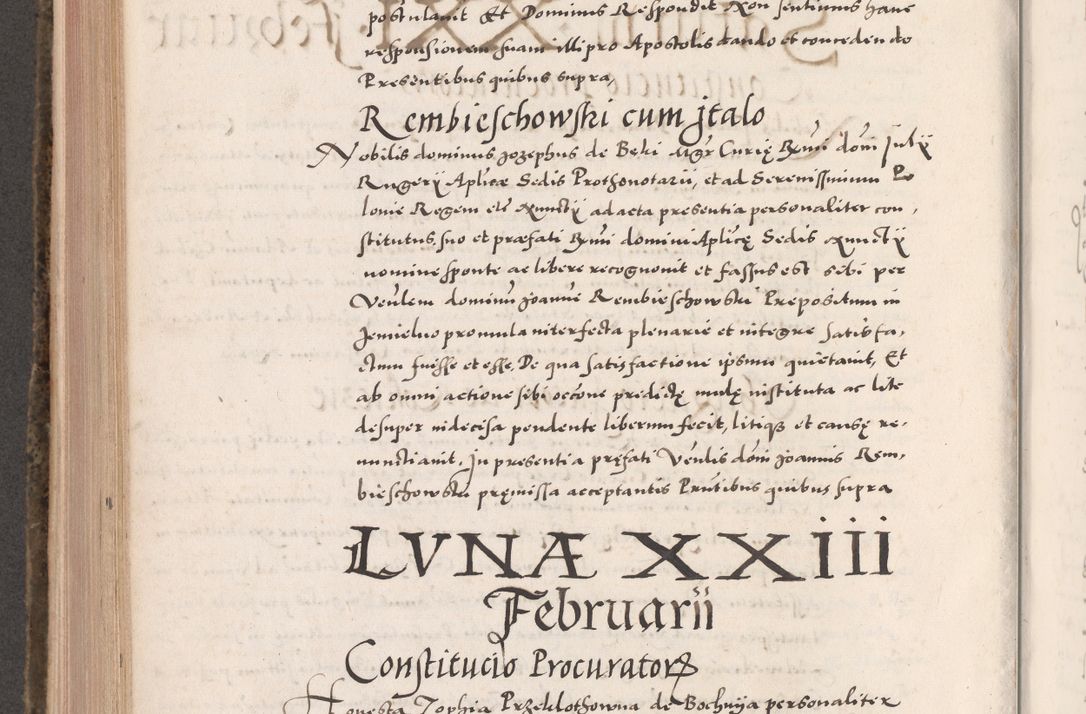 postulavit Et Dominus Respondit Non sentimus hanc
responsionem suam illi pro Apostolis dando et conceden do
Presentibus quibus supra,
Rembieschowski cum Jtalo
Nobilis dominus Jozephus de Beki Mgr̃ Curię Rx̃mi dom̃i Julij
Rugerij Aplicæ Sedis Prothonotarii, et ad Serenissimum Po
lonie Regem etc̃ Nunctij ad acta presentia personaliter con,
stitutus, suo et præfati Rx̃mi domini Aplicę Sedis Nunctij
nomine sponte ac libere recognovit et fassus est sibi per
Ven̄lem dominũ Joannẽ Rembieschowski Prepositum in
Jemielno pro mula interfecta plenarie et integre satis fa,
ctum fuisse et esse, De qua satisfactione ipsum quietavit, Et
ab omni actione sibi occõne predictę mulę instituta ac lite
desuper indecisa pendente liberum fecit, litiqȝ et causę re,
nunctiavit. Jn presentia pręfati Ven̄lis dom̃i Joannis Rem,
bieschowski pręmissa acceptantis Prñtibus quibus supra
LVNÆ XXiii
Februarii
Constitucio Procuratorꝝ
Honesta Zophia Przeklothowna de Bochnya personaliter